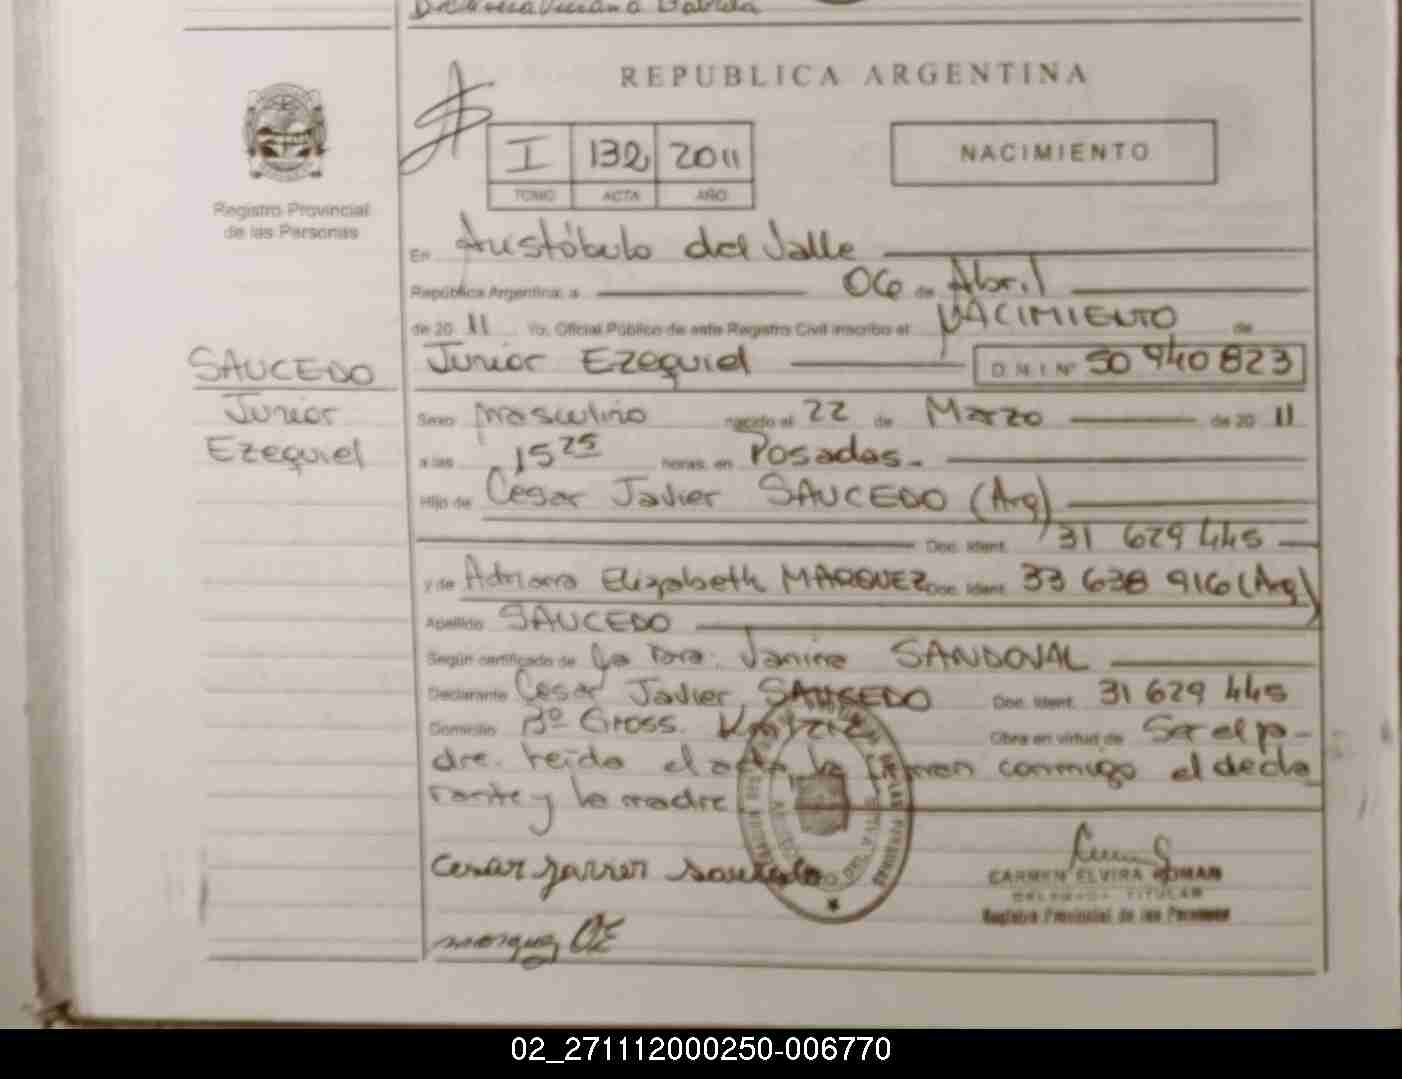 REPUBLICA ARGENTINA
I 132 2011
TOMO ACTA AÑO
NACIMIENTO
Registro Provincial
de las Personas
En Aristóbulo del Valle
República Argentina: a 06 de Abril
de 20 11 Yo, Oficial Público de este Registro Civil inscribo el NACIMIENTO de
SAUCEDO
Junior
Ezequiel
Junior Ezequiel D.N.I Nº 50 940 823
Sexo masculino nacido el 22 de Marzo de 20 11
a las 15 25 horas. en Posadas.
Hijo de César Javier SAUCEDO (Arg)
Doc. Ident. 31 629 445
y de Adriana Elizabeth MARQUEZ Doc. Ident. 33 638 916 (Arg)
Apellido SAUCEDO
Según certificado de la Dra: SANDOVAL
Declarante César Javier SAUCEDO Doc. Ident. 31 629 445
Domicilio Bº Gross. Obra en virtud de Ser el pa-
dre. leida el acta, la firman conmigo el decla
rante y la madre
cesar javier saucedo
CARMEN ELVIRA ROMAN
DELEGADA TITULAR
Registro Provincial de las Personas
marquez
02_271112000250-006770